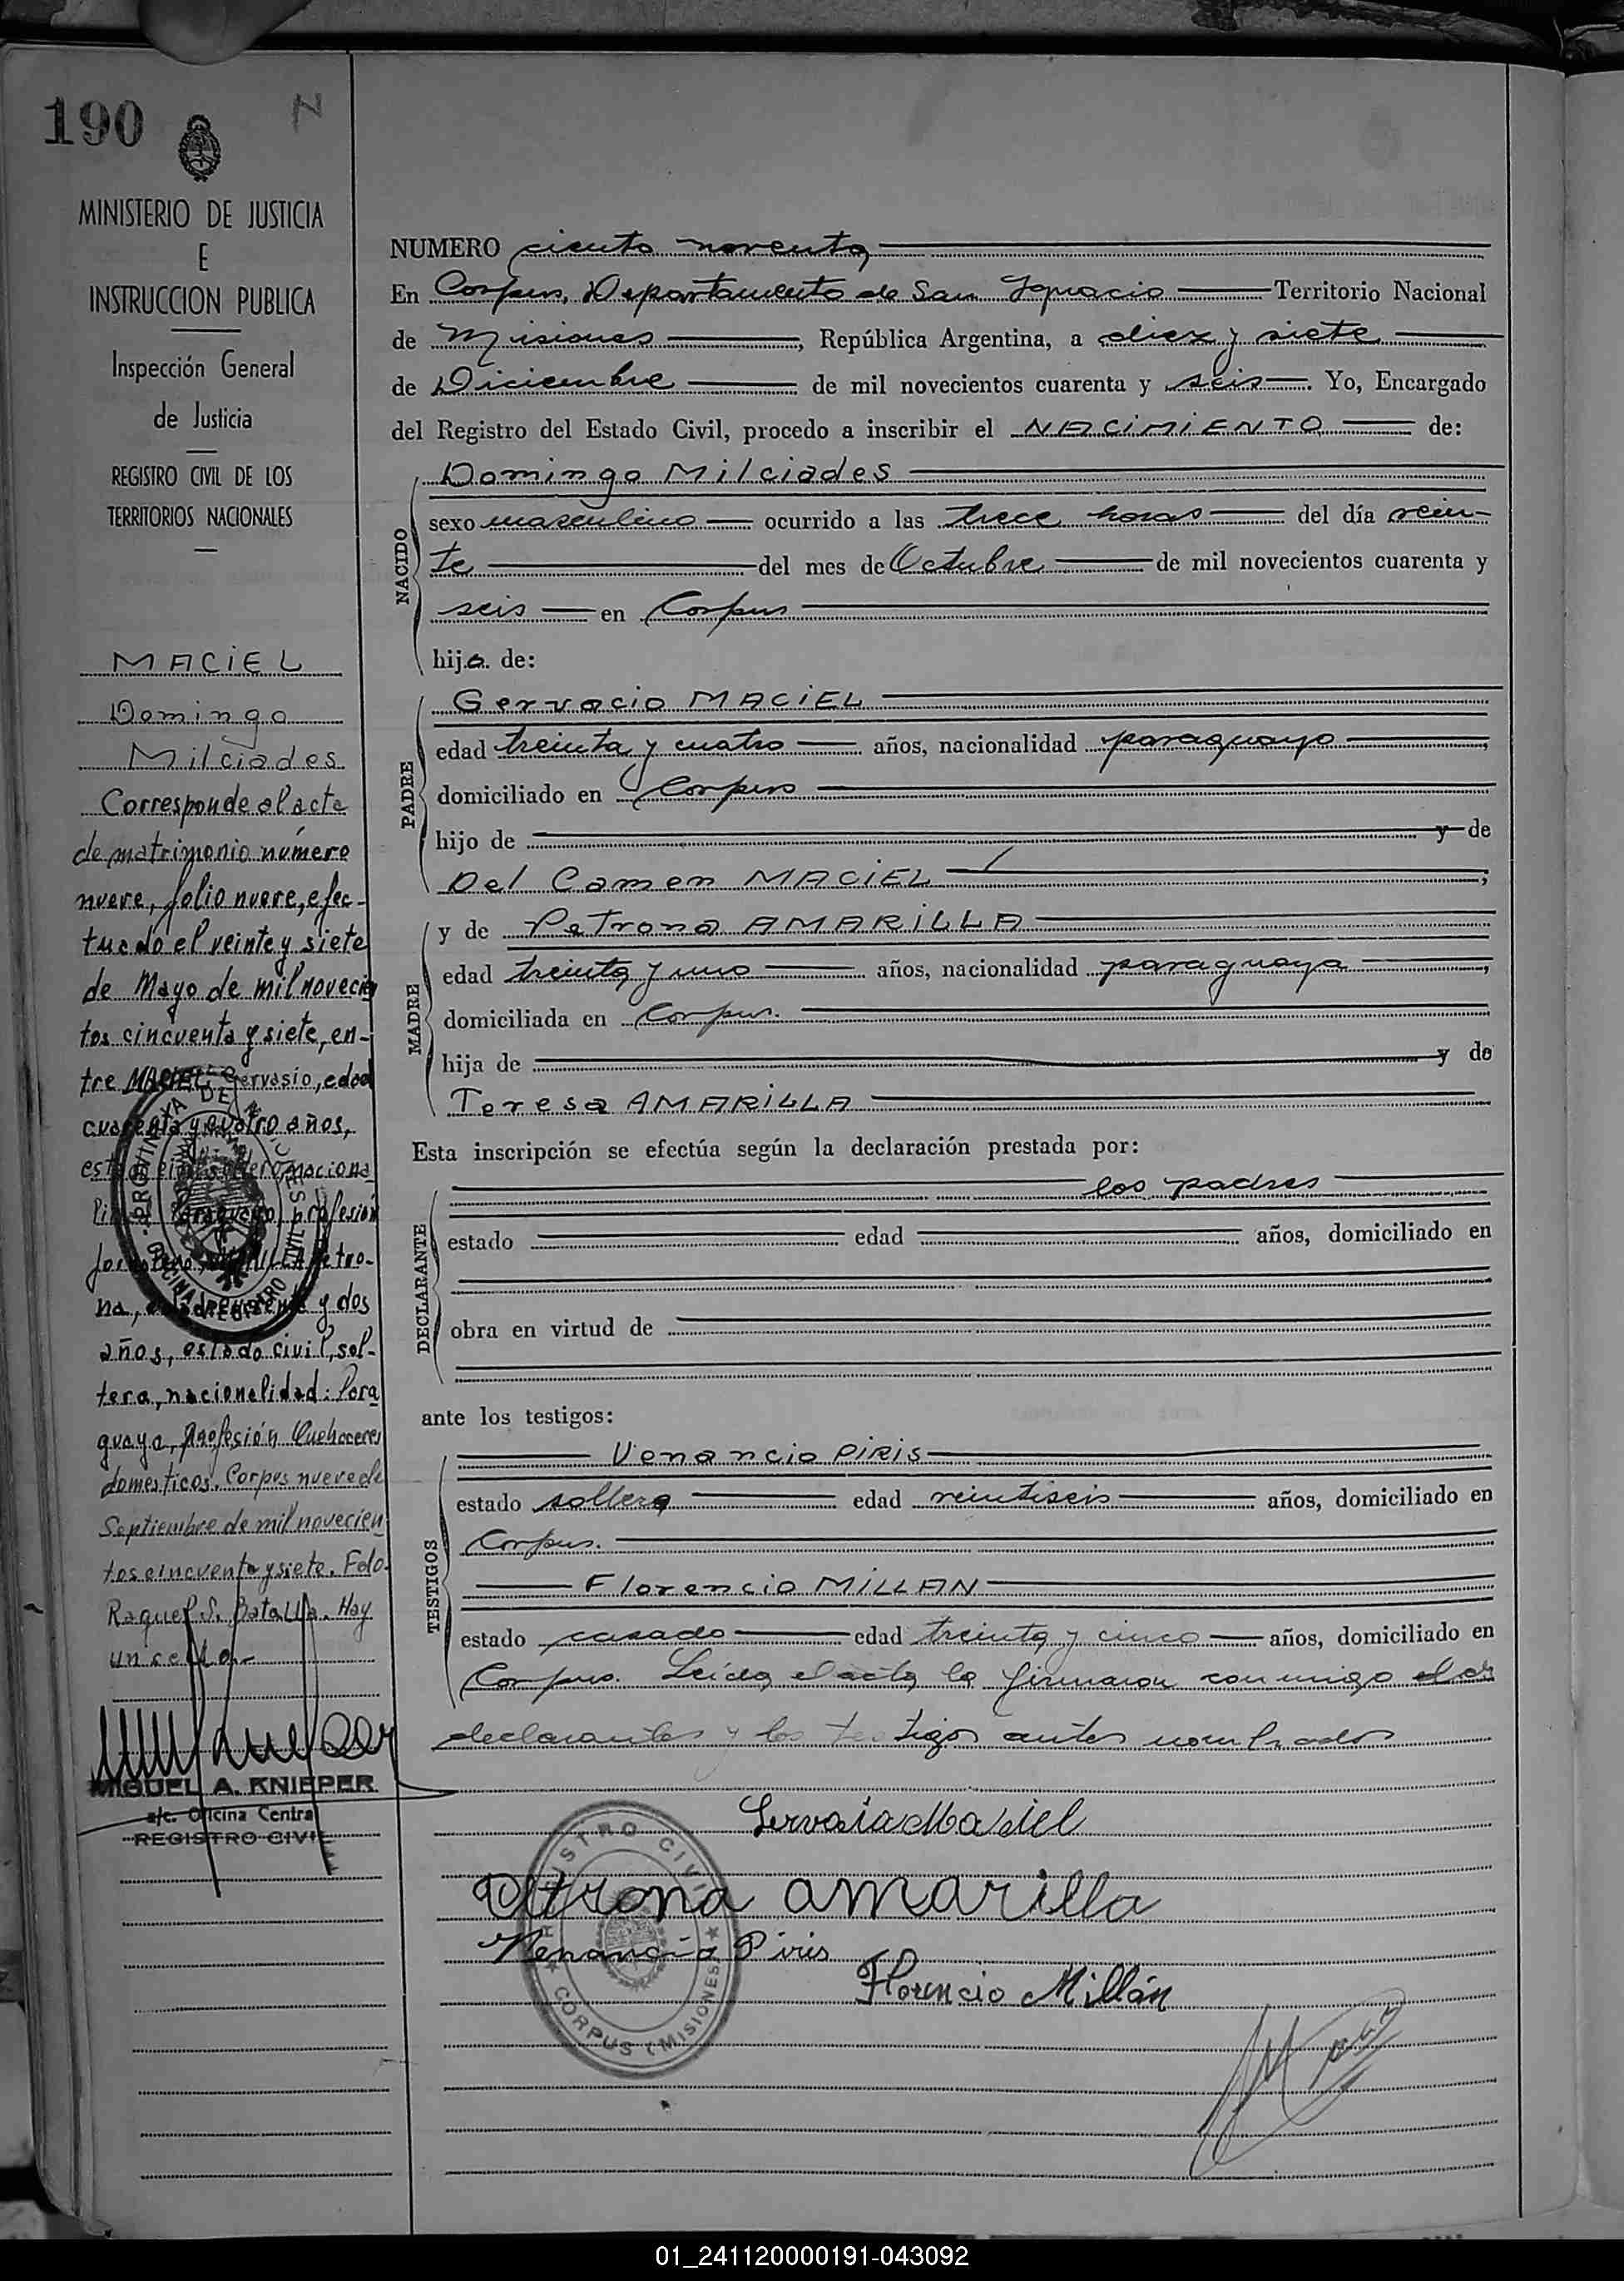 190
N
MINISTERIO DE JUSTICIA
E
INSTRUCCION PUBLICA
Inspección General
de Justicia
REGISTRO CIVIL DE LOS
TERRITORIOS NACIONALES
MACiEL
Domingo
Milciades
Corresponde al acta
de matrimonio número
nueve, folio nueve, efec-
tuado el veinte y siete
de Mayo de mil novecien
tos cincuenta y siete, en-
tre MACIEL Gervasio, edad
cuarenta y cuatro años,
estado civil soltero, naciona
Paraguayo, profesión
AMARILLA Petro-
na, edad cuarenta y dos
años, estado civil, sol-
tera, nacionalidad: Para
guaya, Profesión Quehaceres
domesticos. Corpus nueve de
Septiembre de mil novecien
tos cincuenta y siete. Fdo.
Raquel S. Batalla. Hay
un sello.-
MIGUEL A. KNIEPER
a/c. Oficina Central
REGISTRO CIVIL
NUMERO ciento noventa
En Corpus, Departamento de San Ignacio Territorio Nacional
de Misiones, República Argentina, a diez y siete
de Diciembre de mil novecientos cuarenta y seis. Yo, Encargado
del Registro del Estado Civil, procedo a inscribir el NACiMiENTO de:
NACIDO
Domingo Milciades
sexo masculino ocurrido a las trece horas del día vein-
te del mes de Octubre de mil novecientos cuarenta y
seis en Corpus
hijo de:
PADRE
Gervacio MACiEL
edad treinta y cuatro años, nacionalidad paraguayo,
domiciliado en Corpus
hijo de y de
Del Camen MACiEL;
MADRE
y de Petrona AMARiLLA
edad treinta y uno años, nacionalidad paraguaya,
domiciliada en Corpus.
hija de y de
Teresa AMARiLLA
Esta inscripción se efectúa según la declaración prestada por:
DECLARANTE
los padres
estado edad años, domiciliado en
obra en virtud de
ante los testigos:
TESTIGOS
Venancio PiRiS
estado soltero edad veintiseis años, domiciliado en
Corpus.
Florencio MiLLAN
estado casado edad treinta y cinco años, domiciliado en
Corpus. Leida el acta la firmaron conmigo
declarantes y los testigos antes nombrados
Gervacia Maciel
Petrona amarilla
Venancio Piris
Florencio Millán
REGISTRO CIVIL
CORPUS (MISIONES)
01_241120000191-043092